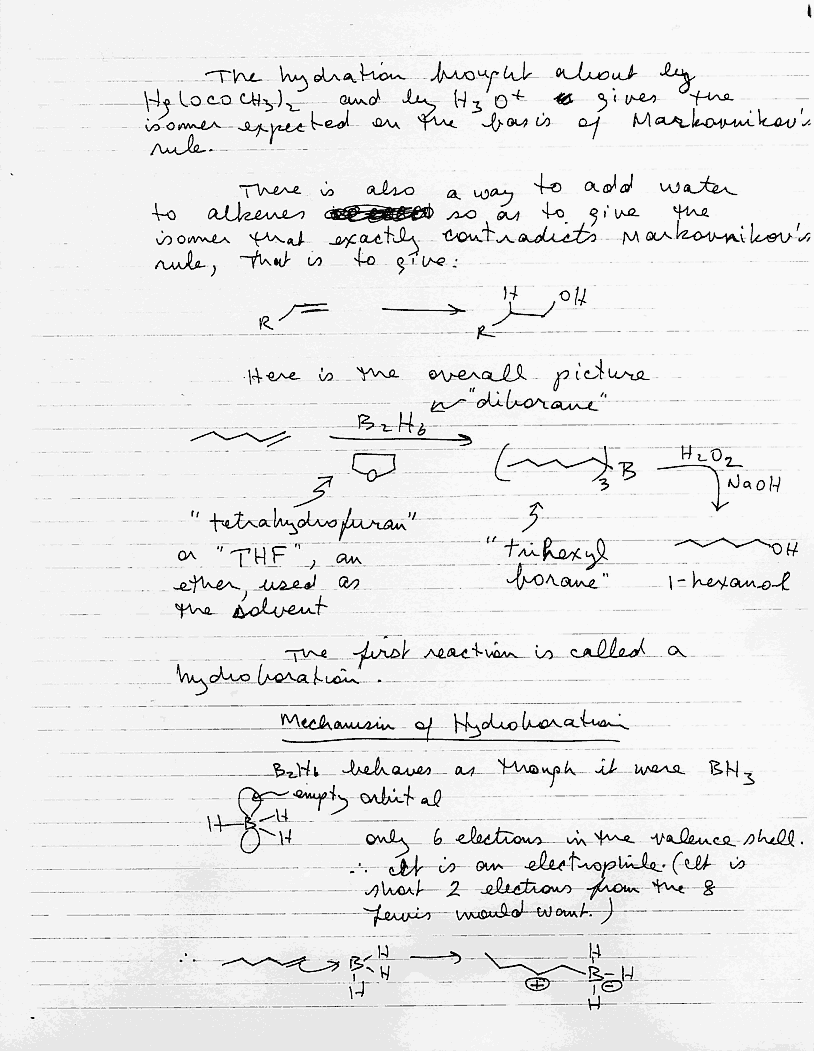 1
The hydration brought about by
Hg(OCOCH3)2 and by H3O+ gives the
isomer expected on the basis of Markovnikov's
rule.
There is also a way to add water
to alkenes so as to give the
isomer that exactly contradicts Markovnikov's
rule, that is to give:
R H OH
R
Here is the overall picture
"diborane"
B2H6
( )3 B H2O2
NaOH
"tetrahydrofuran"
or "THF", an
ether, used as
the solvent
"trihexyl
borane"
OH
1-hexanol
The first reaction is called a
hydroboration.
Mechanism of Hydroboration
B2H6 behaves as though it were BH3
empty orbital
H B H
H
only 6 electrons in the valence shell.
∴ It is an electrophile. (It is
short 2 electrons from the 8
Lewis would want.)
∴ B H H H ⊕ H B H ⊖ H